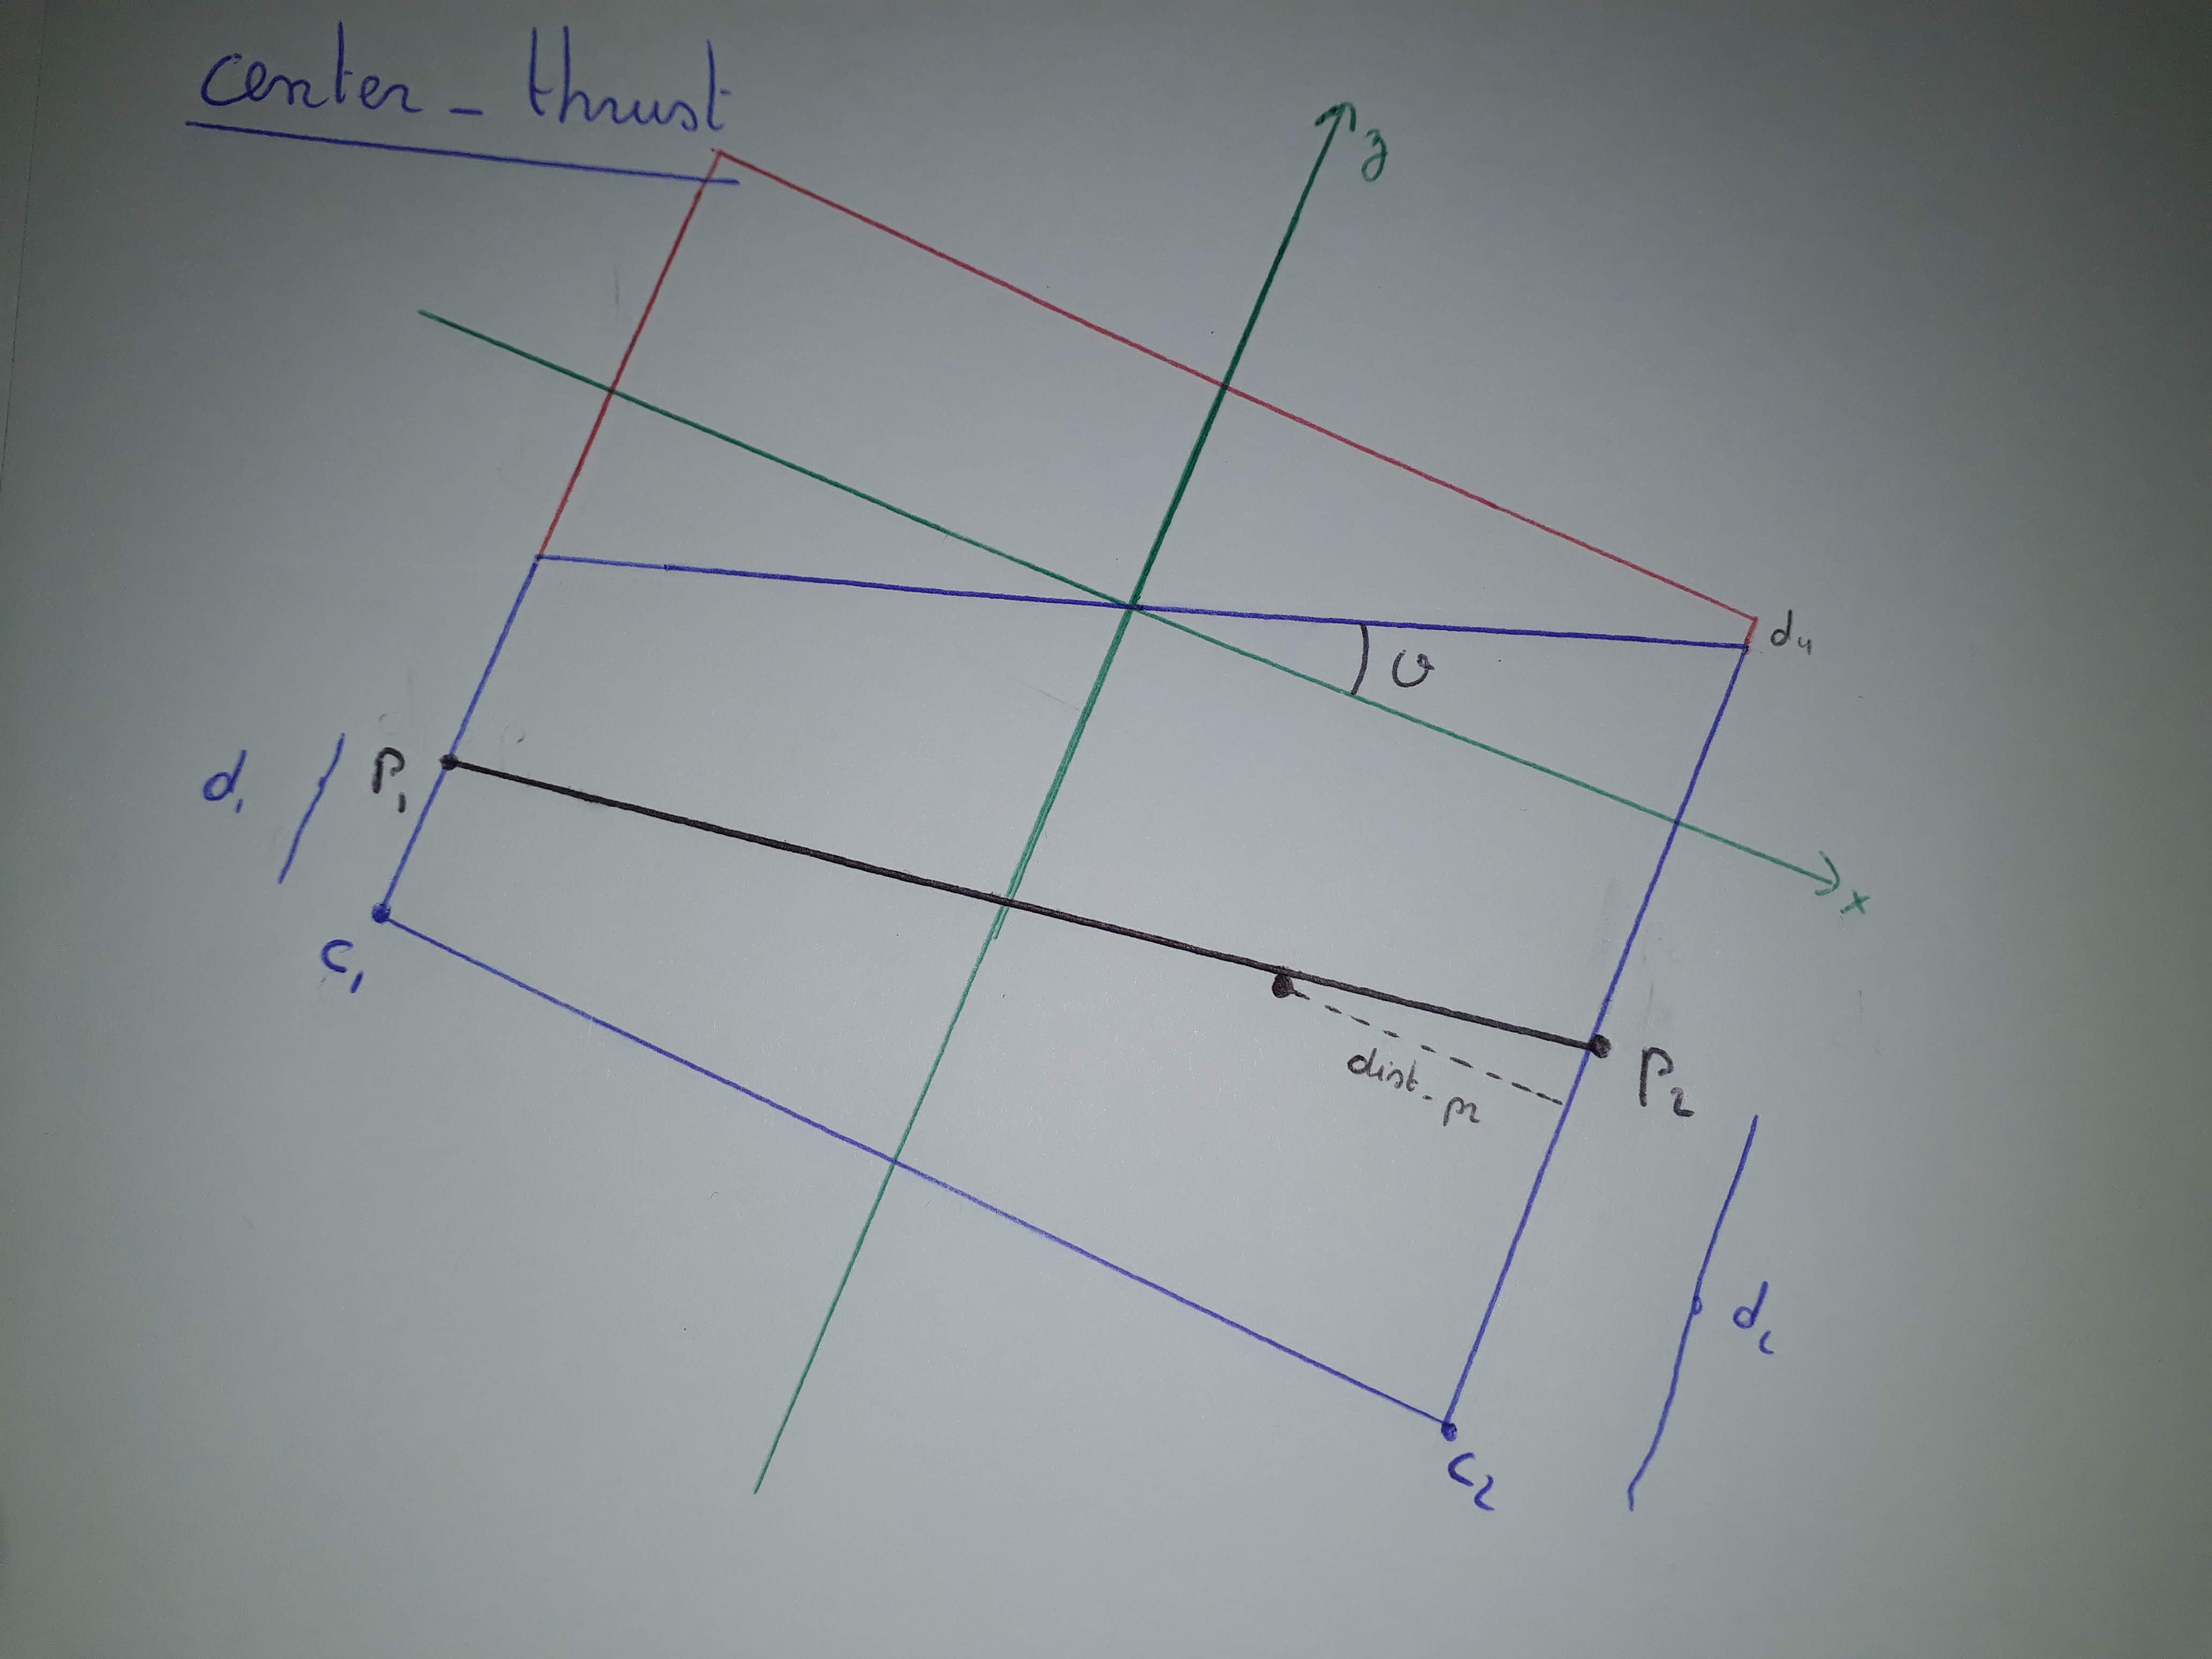 center_thrust
z
d4
ʋ
d1
P1
x
C1
dist_p2
P2
dc
C2